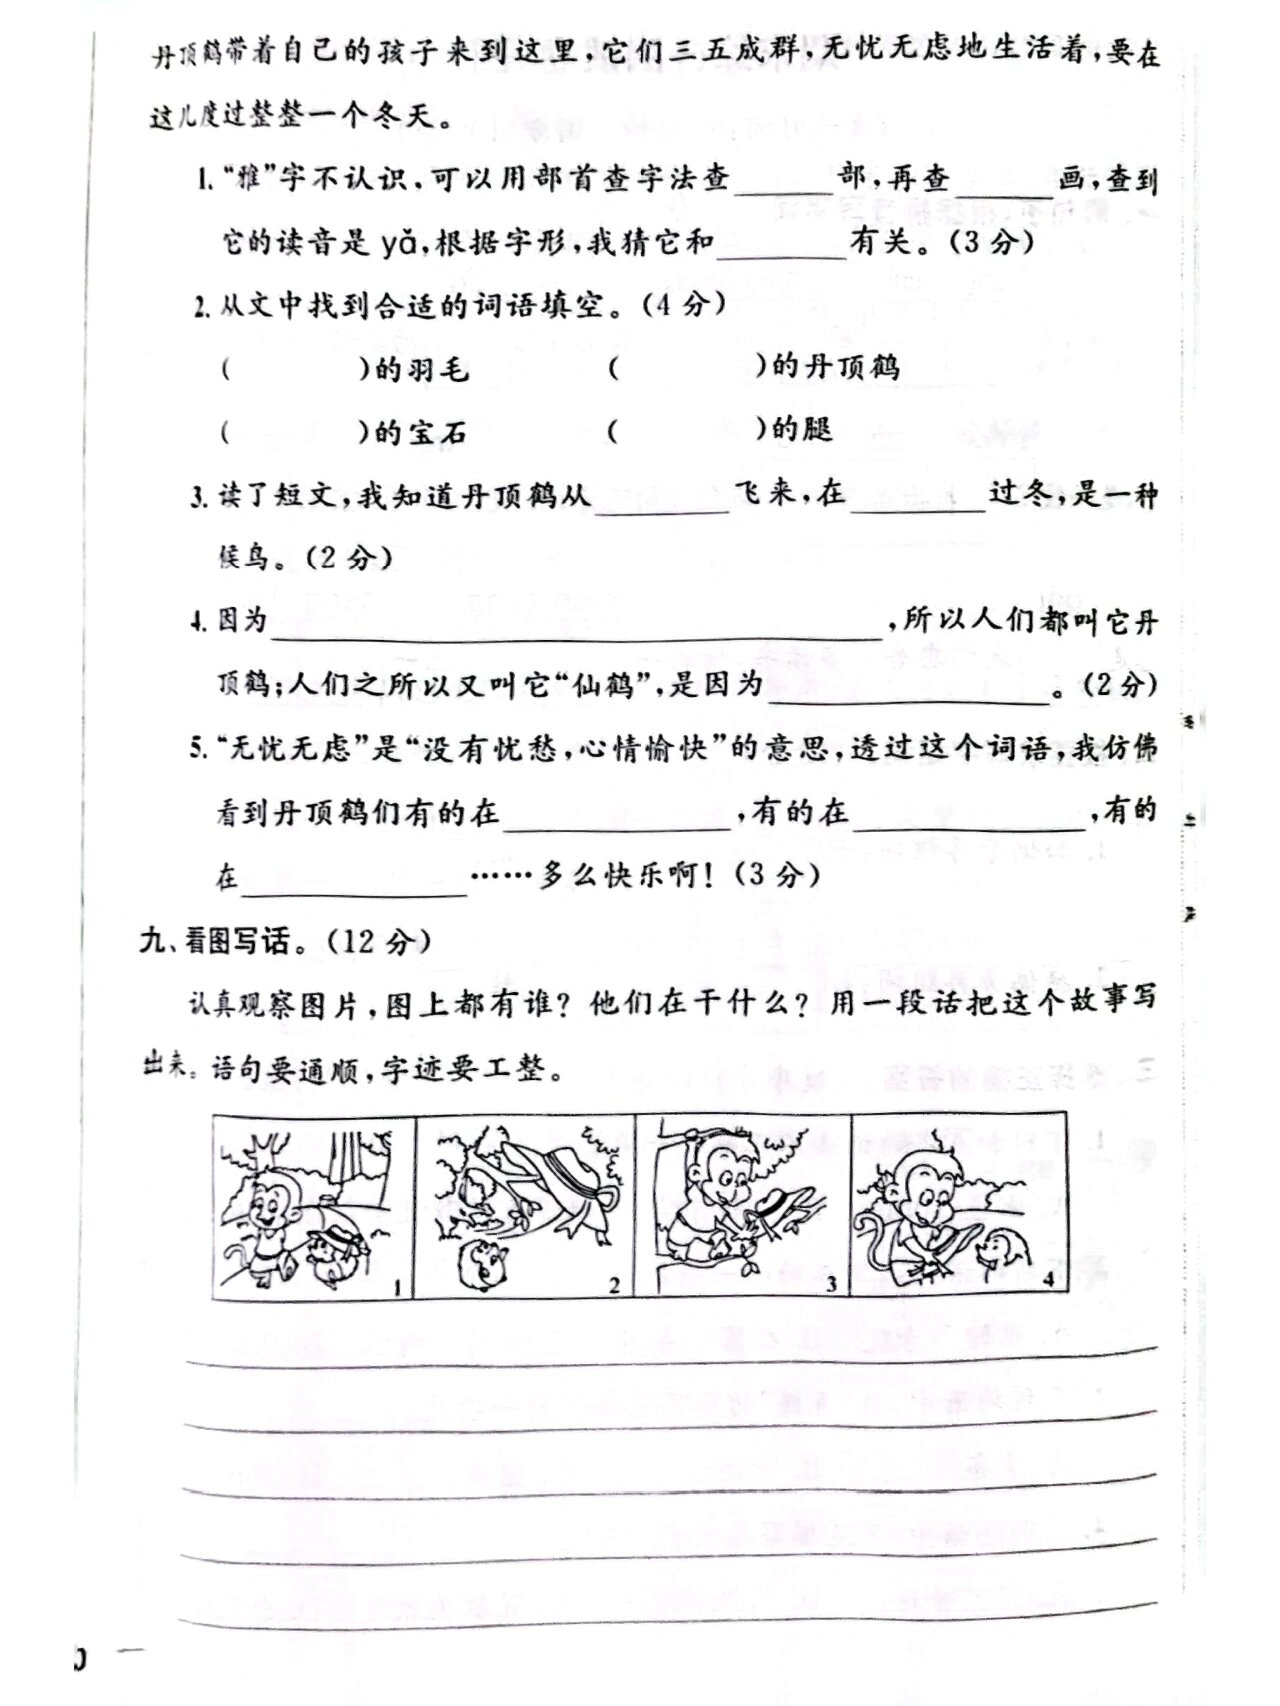 丹顶鹤带着自己的孩子来到这里,它们三五成群,无忧无虑地生活着,要在
这儿度过整整一个冬天。
1.“雅”字不认识,可以用部首查字法查______部,再查______画,查到
它的读音是 yǎ,根据字形,我猜它和________有关。(3 分)
2.从文中找到合适的词语填空。(4 分)
( )的羽毛 ( )的丹顶鹤
( )的宝石 ( )的腿
3.读了短文,我知道丹顶鹤从________飞来,在________过冬,是一种
候鸟。(2 分)
4.因为________________________________,所以人们都叫它丹
顶鹤;人们之所以又叫它“仙鹤”,是因为________________。(2分)
5.“无忧无虑”是“没有忧愁,心情愉快”的意思,透过这个词语,我仿佛
看到丹顶鹤们有的在____________,有的在____________,有的
在____________……多么快乐啊!(3 分)
九、看图写话。(12 分)
认真观察图片,图上都有谁?他们在干什么?用一段话把这个故事写
出来。语句要通顺,字迹要工整。
1 2 3 4